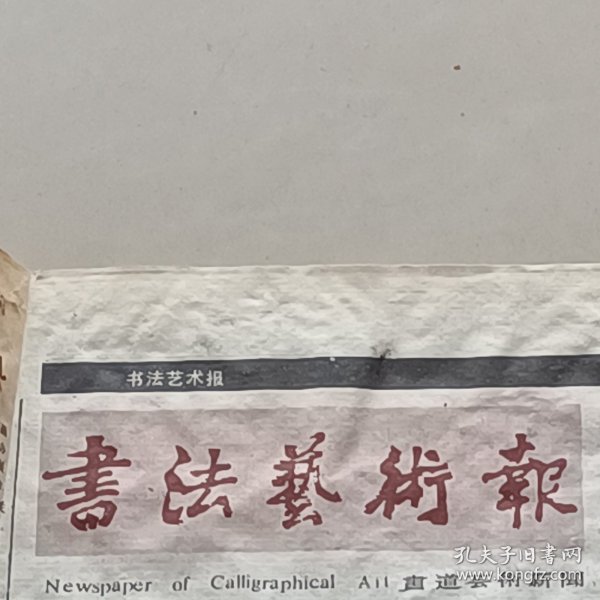 书法艺术报
書法藝術報
Newspaper of Calligraphical Art 書道芸術新聞
孔夫子旧书网
www.kongfz.com